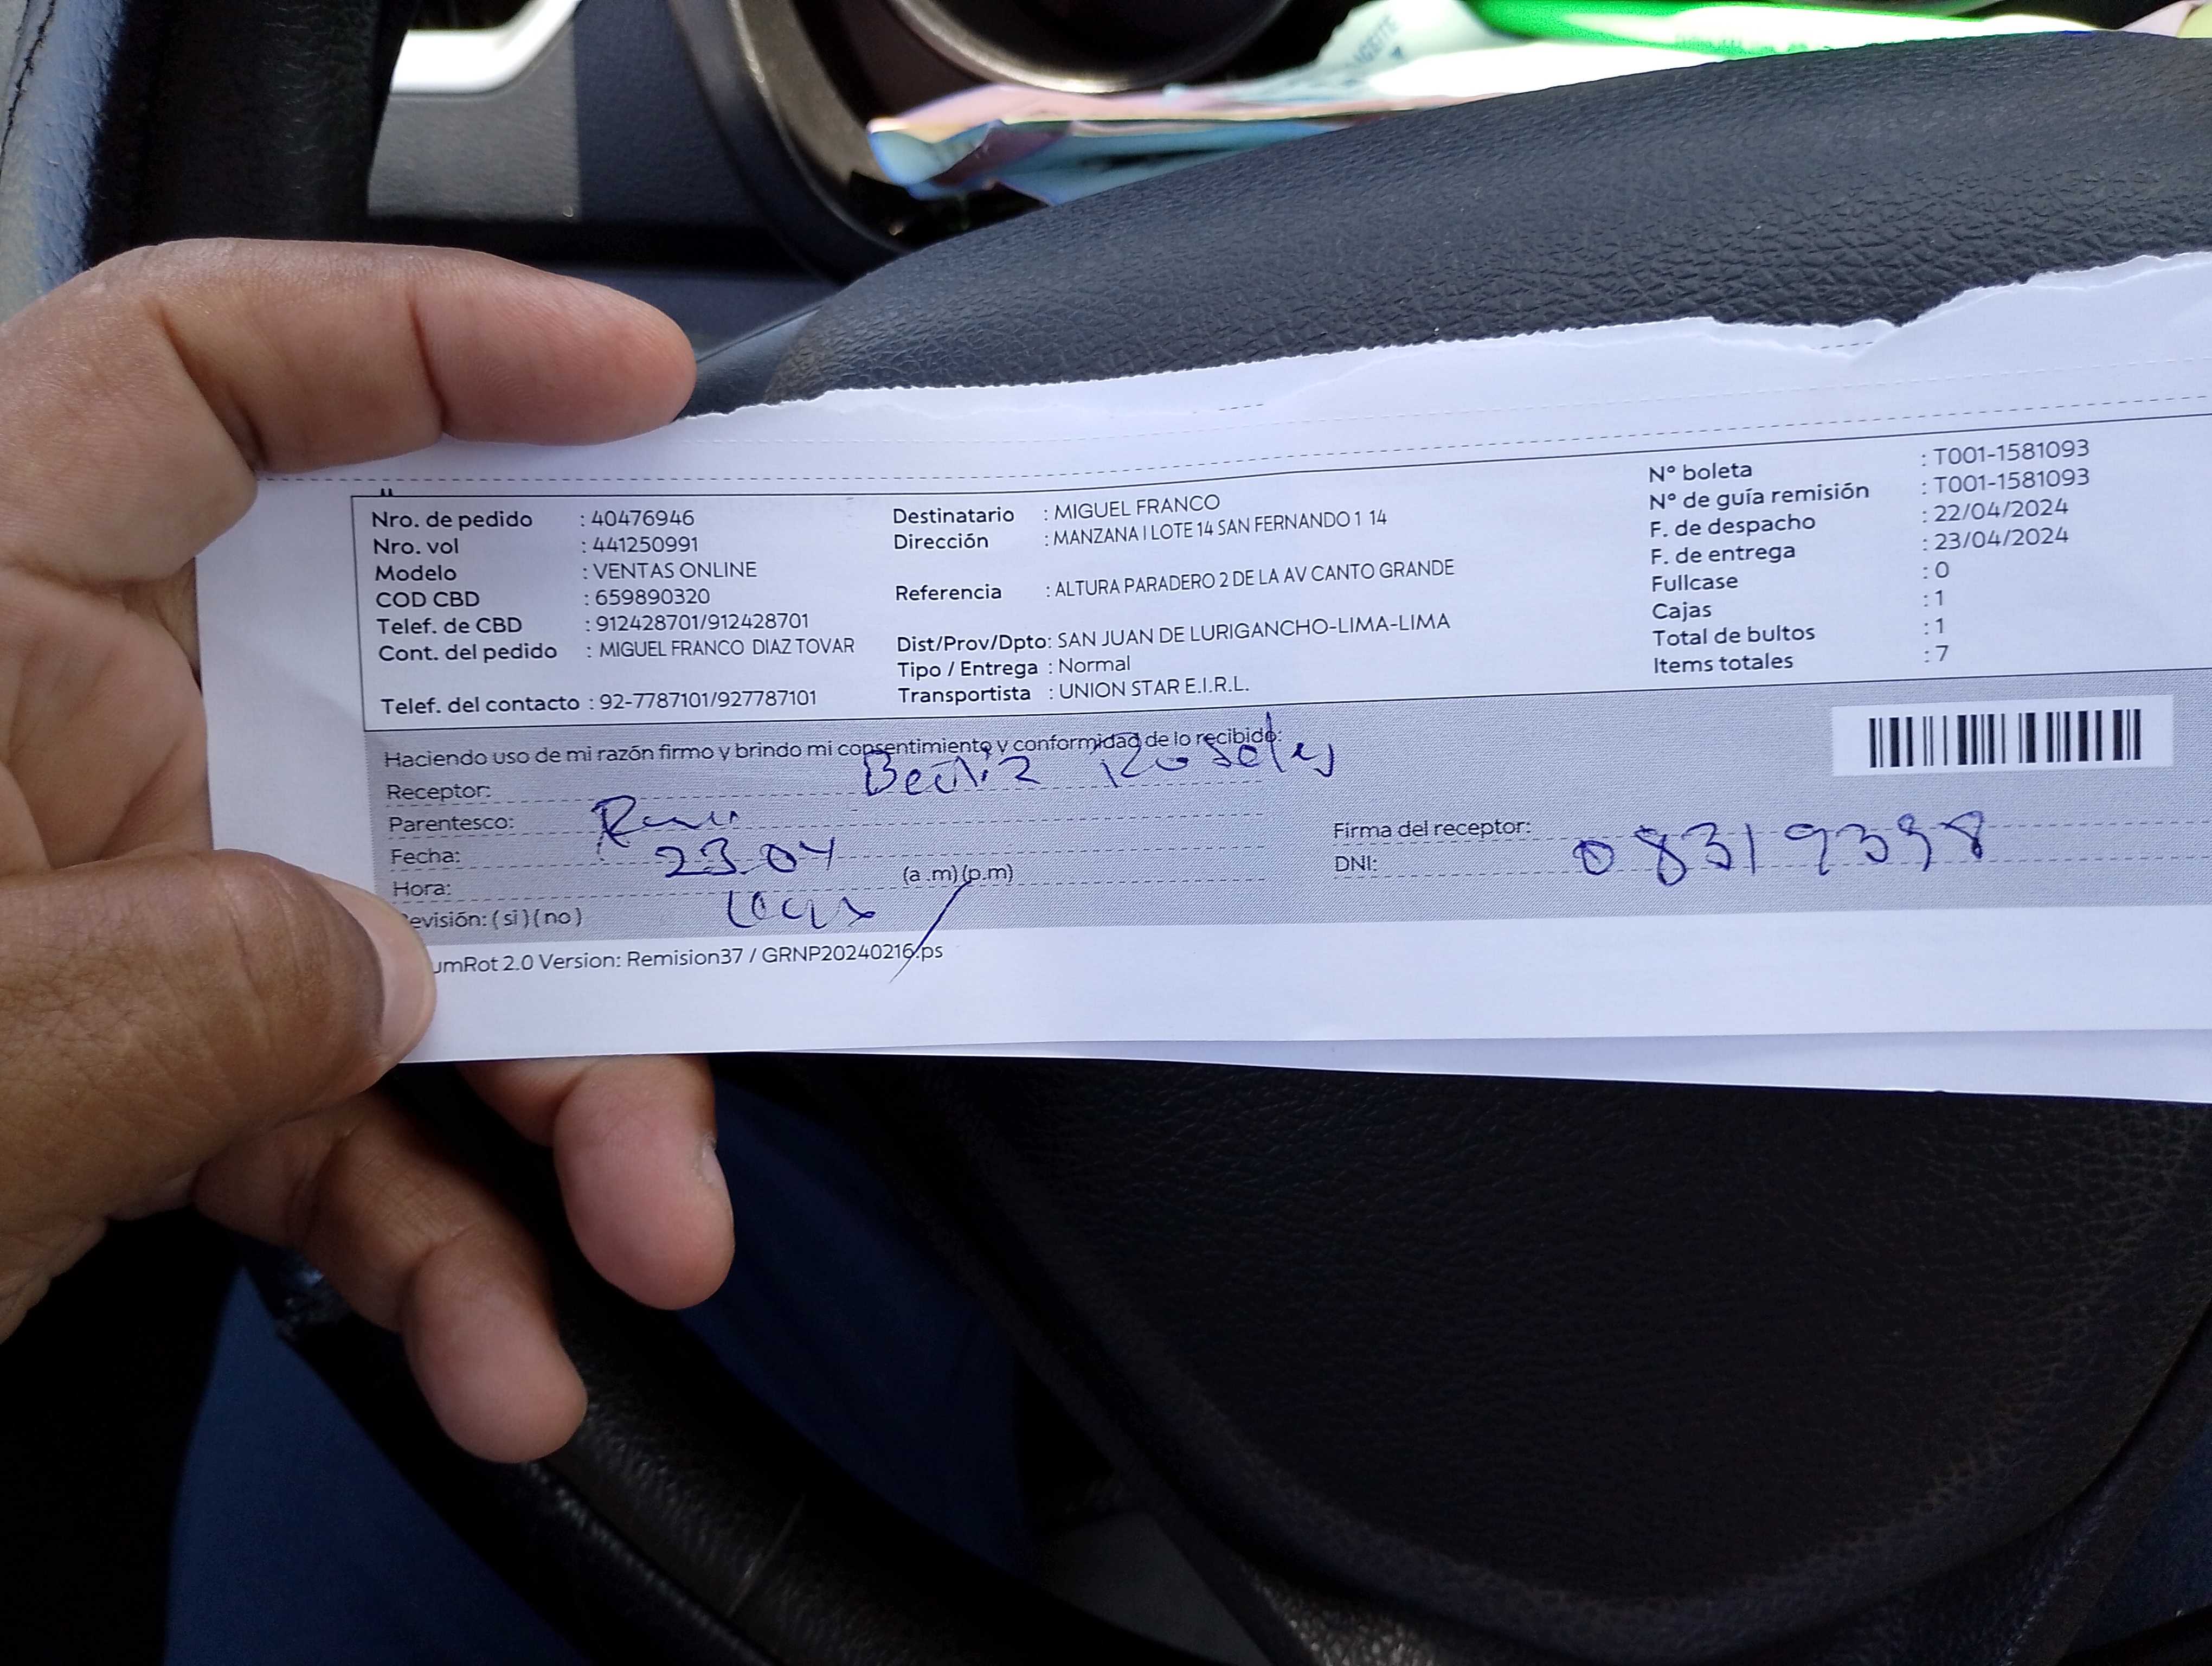 Nro. de pedido : 40476946
Nro. vol : 441250991
Modelo : VENTAS ONLINE
COD CBD : 659890320
Telef. de CBD : 912428701/912428701
Cont. del pedido : MIGUEL FRANCO DIAZ TOVAR
Telef. del contacto : 92-7787101/927787101
Destinatario : MIGUEL FRANCO
Dirección : MANZANA I LOTE 14 SAN FERNANDO 1 14
Referencia : ALTURA PARADERO 2 DE LA AV CANTO GRANDE
Dist/Prov/Dpto: SAN JUAN DE LURIGANCHO-LIMA-LIMA
Tipo / Entrega : Normal
Transportista : UNION STAR E.I.R.L.
N° boleta : T001-1581093
N° de guía remisión : T001-1581093
F. de despacho : 22/04/2024
F. de entrega : 23/04/2024
Fullcase : 0
Cajas : 1
Total de bultos : 1
Items totales : 7
Haciendo uso de mi razón firmo y brindo mi consentimiento y conformidad de lo recibido:
Receptor: Beatriz Rosales
Parentesco:
Fecha: 23 04
Hora: (a .m) (p.m)
evisión: ( si ) ( no )
Firma del receptor:
DNI: 08319398
umRot 2.0 Version: Remision37 / GRNP20240216.ps